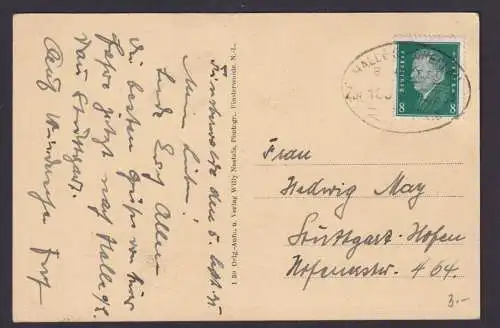 Finsterwalde den 5. Sept. 31.
Mein Lieber!
Euch Allen
die besten Grüße von hier
fahre jetzt nach Halle a/S.
dann Stuttgart.
Auf Wiedersehn
1 30 Orig.-Aufn. u. Verlag Willy Nestala, Photogr. Finsterwalde, N.-L.
HALLE
DEUTSCHES REICH
8 8
Frau
Hedwig May
Stuttgart-Hofen
Hofenerstr. 464.
3.-